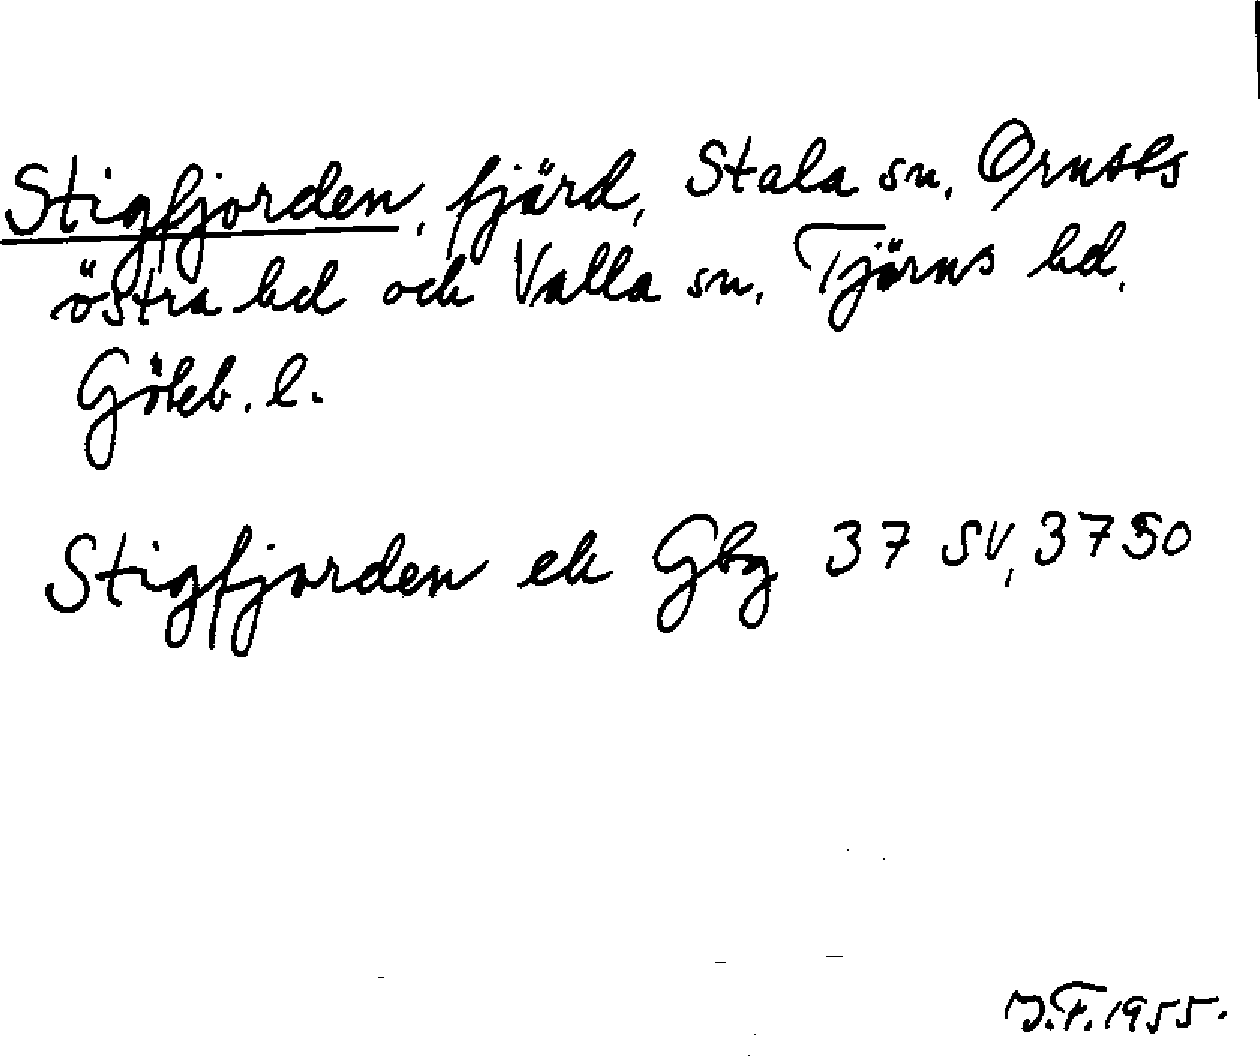 Stigfjorden, fjärd, Stala sn, Orusts
östra hd och Valla sn, Tjörns hd,
Göteb. l.
Stigfjorden ek Gbg 37 SV, 3750
J.F. 1955.